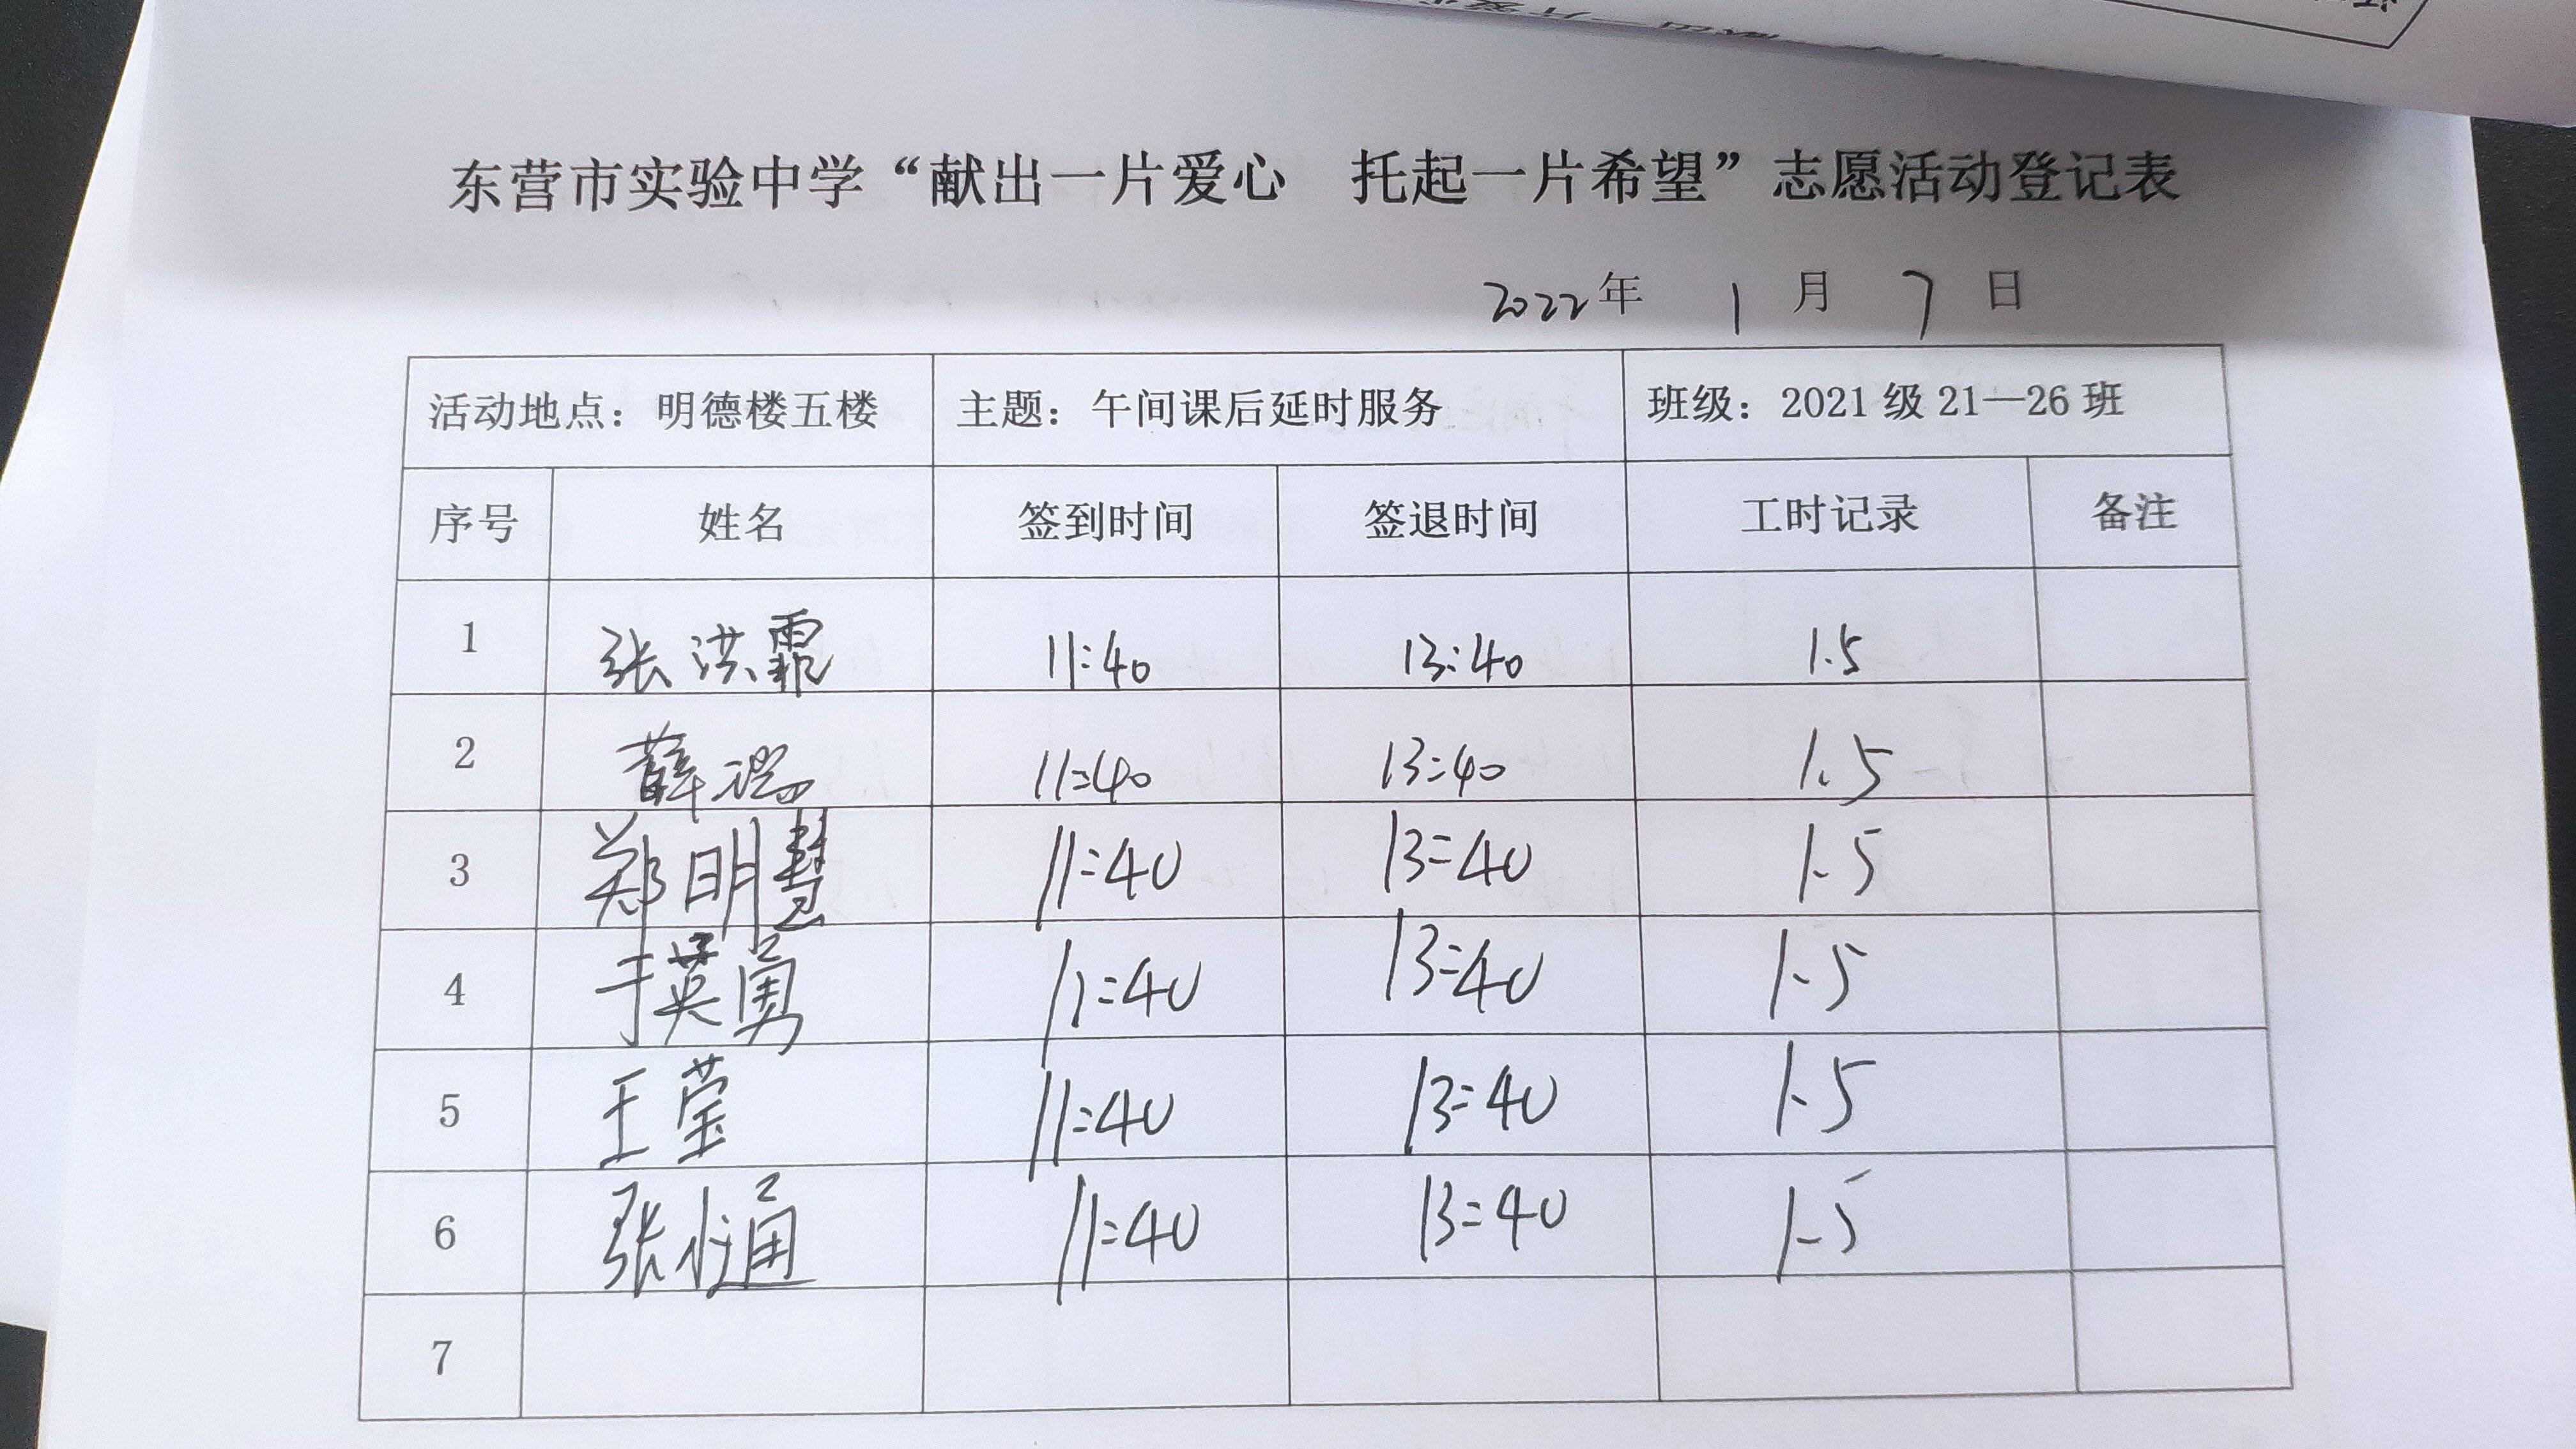 东营市实验中学“献出一片爱心 托起一片希望”志愿活动登记表
2022年 1月 7日
活动地点：明德楼五楼 主题：午间课后延时服务 班级：2021级21—26班
序号 姓名 签到时间 签退时间 工时记录 备注
1 张洪霏 11:40 13:40 1.5
2 薛 11:40 13:40 1.5
3 郑明慧 11:40 13:40 1.5
4 于英勇 11:40 13:40 1.5
5 王莹 11:40 13:40 1.5
6 张 11:40 13:40 1.5
7